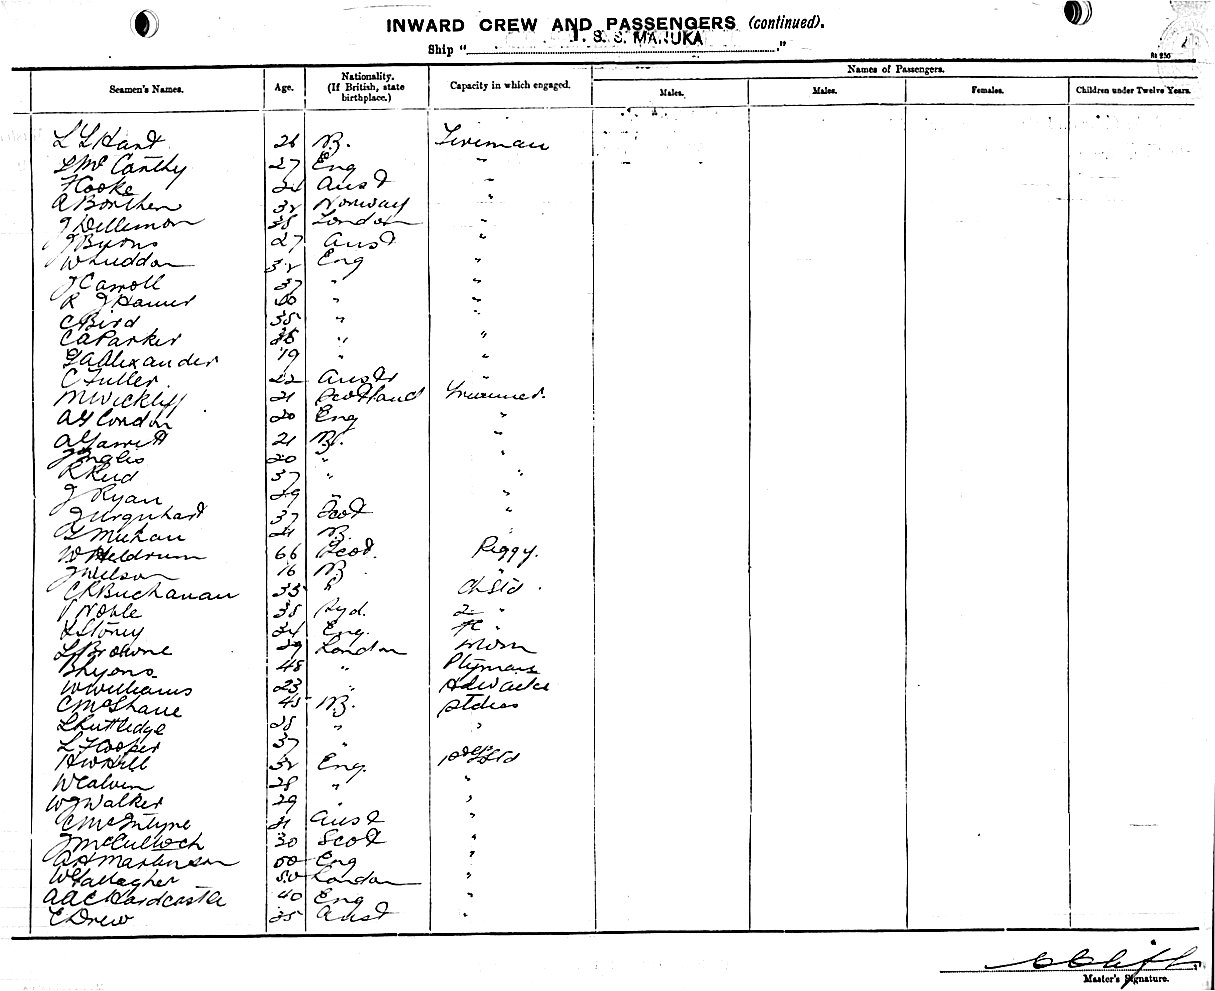 INWARD CREW AND PASSENGERS (continued).
Ship " T. S. S. MANUKA "
Names of Passengers.
Seamen's Names. Age. Nationality. (If British, state birthplace.) Capacity in which engaged. Males. Males. Females. Children under Twelve Years.
L L Hand 26 N. Fireman
L McCarthy 27 Eng "
F Cooke 24 Aust "
A Borthen 32 Norway "
J Dellimon 38 London "
J Byrons 27 Aust "
W Luddon 32 Eng "
J Carroll 37 " "
R J Hamer 40 " "
C Bird 35 " "
C A Parker 38 " "
G A Alexander 19 " "
C Fuller 22 Austr "
M Wickliff 21 Scotland Trimmer.
A G Condon 20 Eng "
A Garrett 21 N. "
J Inglis 20 " "
R Reid 37 " "
J Ryan 29 " "
J Urquhart 37 Scot "
21 N.
W Meldrum 66 Scot. Peggy.
J Wilson 16 N "
C R Buchanan 35 " Ch Std.
Noble 38 Syd. 2 "
L Storey 34 Eng.
L J Browne 29 London
B Lyons 48 " Ptyman
W Williams 23 "
C McShane 45 N.
L Ruttledge 28 " "
L F Cooper 37 "
H W Hill 32 Eng.
W Calvin 28 " "
W J Walker 29 " "
C McIntyre 21 Aust "
J McCulloch 30 Scot "
A H Martinson 50 Eng "
W Gallagher 50 London "
A A C Hardcastle 40 Eng "
E Drew 35 Aust "
Master's Signature.